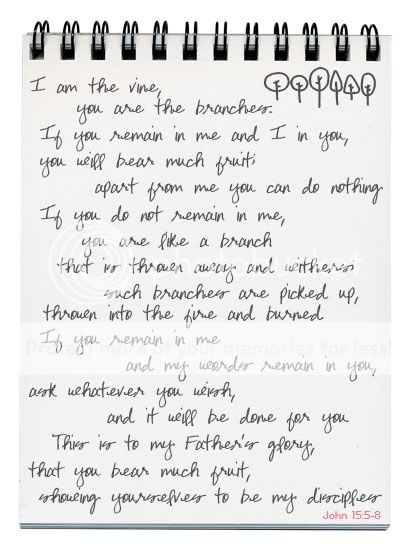 I am the vine,
you are the branches.
If you remain in me and I in you,
you will bear much fruit;
apart from me you can do nothing
If you do not remain in me,
you are like a branch
that is thrown away and withers;
such branches are picked up,
thrown into the fire and burned
If you remain in me
Protect more of your memories for less!
and my words remain in you,
ask whatever you wish,
and it will be done for you
This is to my Father's glory,
that you bear much fruit,
showing yourselves to be my disciples
John 15:5-8